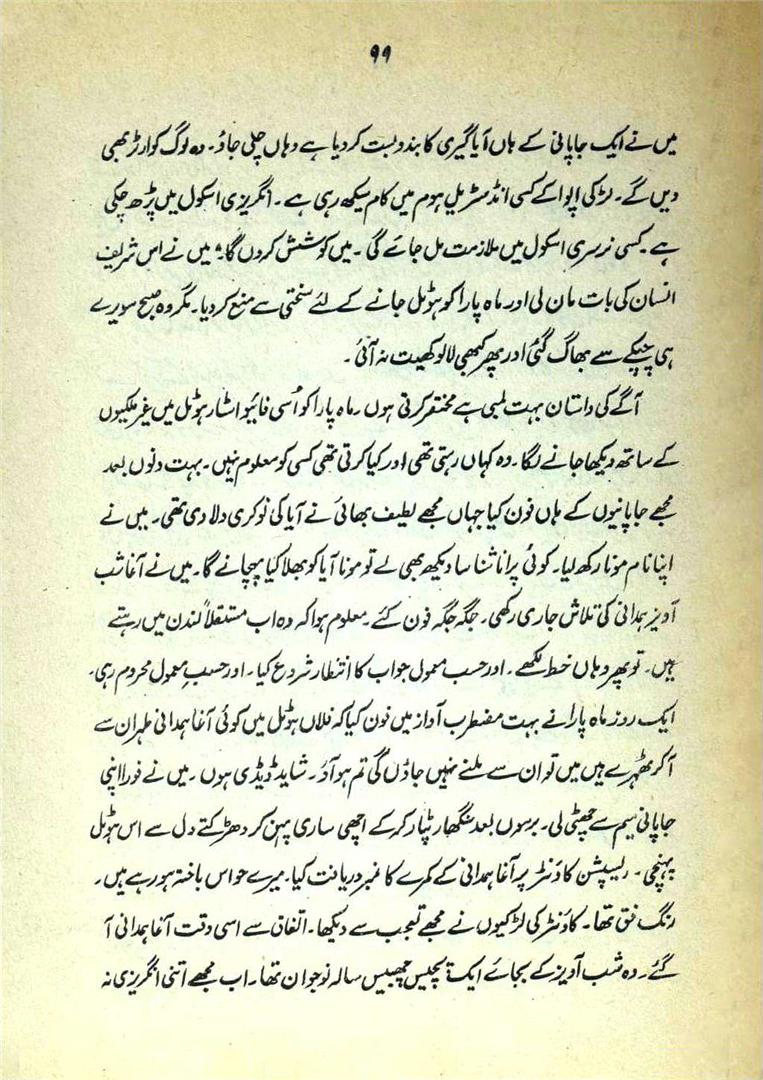 ۹۹
میں نے ایک جاپانی کے ہاں آیا گیری کا بندوبست کردیا ہے وہاں چلی جاؤ۔ وہ لوگ کوارٹر بھی
دیں گے۔ لڑکی اپوا کے کسی انڈسٹریل ہوم میں کام سیکھ رہی ہے۔ انگریزی اسکول میں پڑھ چکی
ہے۔ کسی نرسری اسکول میں ملازمت مل جائے گی۔ میں کوشش کردوں گا۔" میں نے اس شریف
انسان کی بات مان لی اور ماہ پارا کو ہوٹل جانے کے لئے سختی سے منع کردیا۔ مگر وہ صبح سویرے
ہی چپکے سے بھاگ گئی اور پھر کبھی لالوکھیت نہ آئی۔
آگے کی داستان بہت لمبی ہے مختصر کرتی ہوں۔ ماہ پارا کو اُسی فائیو اسٹار ہوٹل میں غیر ملکیوں
کے ساتھ دیکھا جانے لگا۔ وہ کہاں رہتی تھی اور کیا کرتی تھی کسی کو معلوم نہیں۔ بہت دنوں بعد
مجھے جاپانیوں کے ہاں فون کیا جہاں مجھے لطیف بھائی نے آیا کی نوکری دلا دی تھی۔ میں نے
اپنا نام مونا رکھ لیا۔ کوئی پرانا شناسا دیکھ بھی لے تو مونا آیا کو بھلا کیا پہچانے گا۔ میں نے آغا شب
آویز ہمدانی کی تلاش جاری رکھی۔ جگہ جگہ فون کئے۔ معلوم ہوا کہ وہ اب مستقلاً لندن میں رہتے
ہیں۔ تو پھر وہاں خط لکھے۔ اور حسب معمول جواب کا انتظار شروع کیا۔ اور حسب معمول محروم رہی۔
ایک روز ماہ پارا نے بہت مضطرب آواز میں فون کیا کہ فلاں ہوٹل میں کوئی آغا ہمدانی طہران سے
آکر ٹھہرے ہیں میں تو ان سے ملنے نہیں جاؤں گی تم ہو آؤ۔ شاید ڈیڈی ہوں۔ میں نے فوراً اپنی
جاپانی میم سے چھٹی لی۔ برسوں بعد سنگھار پٹار کرکے اچھی ساری پہن کر دھڑکتے دل سے اس ہوٹل
پہنچی۔ ریسپشن کاؤنٹر پر آغا ہمدانی کے کمرے کا نمبر دریافت کیا۔ میرے حواس باختہ ہو رہے ہیں۔
رنگ فق تھا۔ کاؤنٹر کی لڑکیوں نے مجھے تعجب سے دیکھا۔ اتفاق سے اسی وقت آغا ہمدانی آ
گئے۔ وہ شب آویز کے بجائے ایک پچیس چھبیس سالہ نوجوان تھا۔ اب مجھے اتنی انگریزی نہ